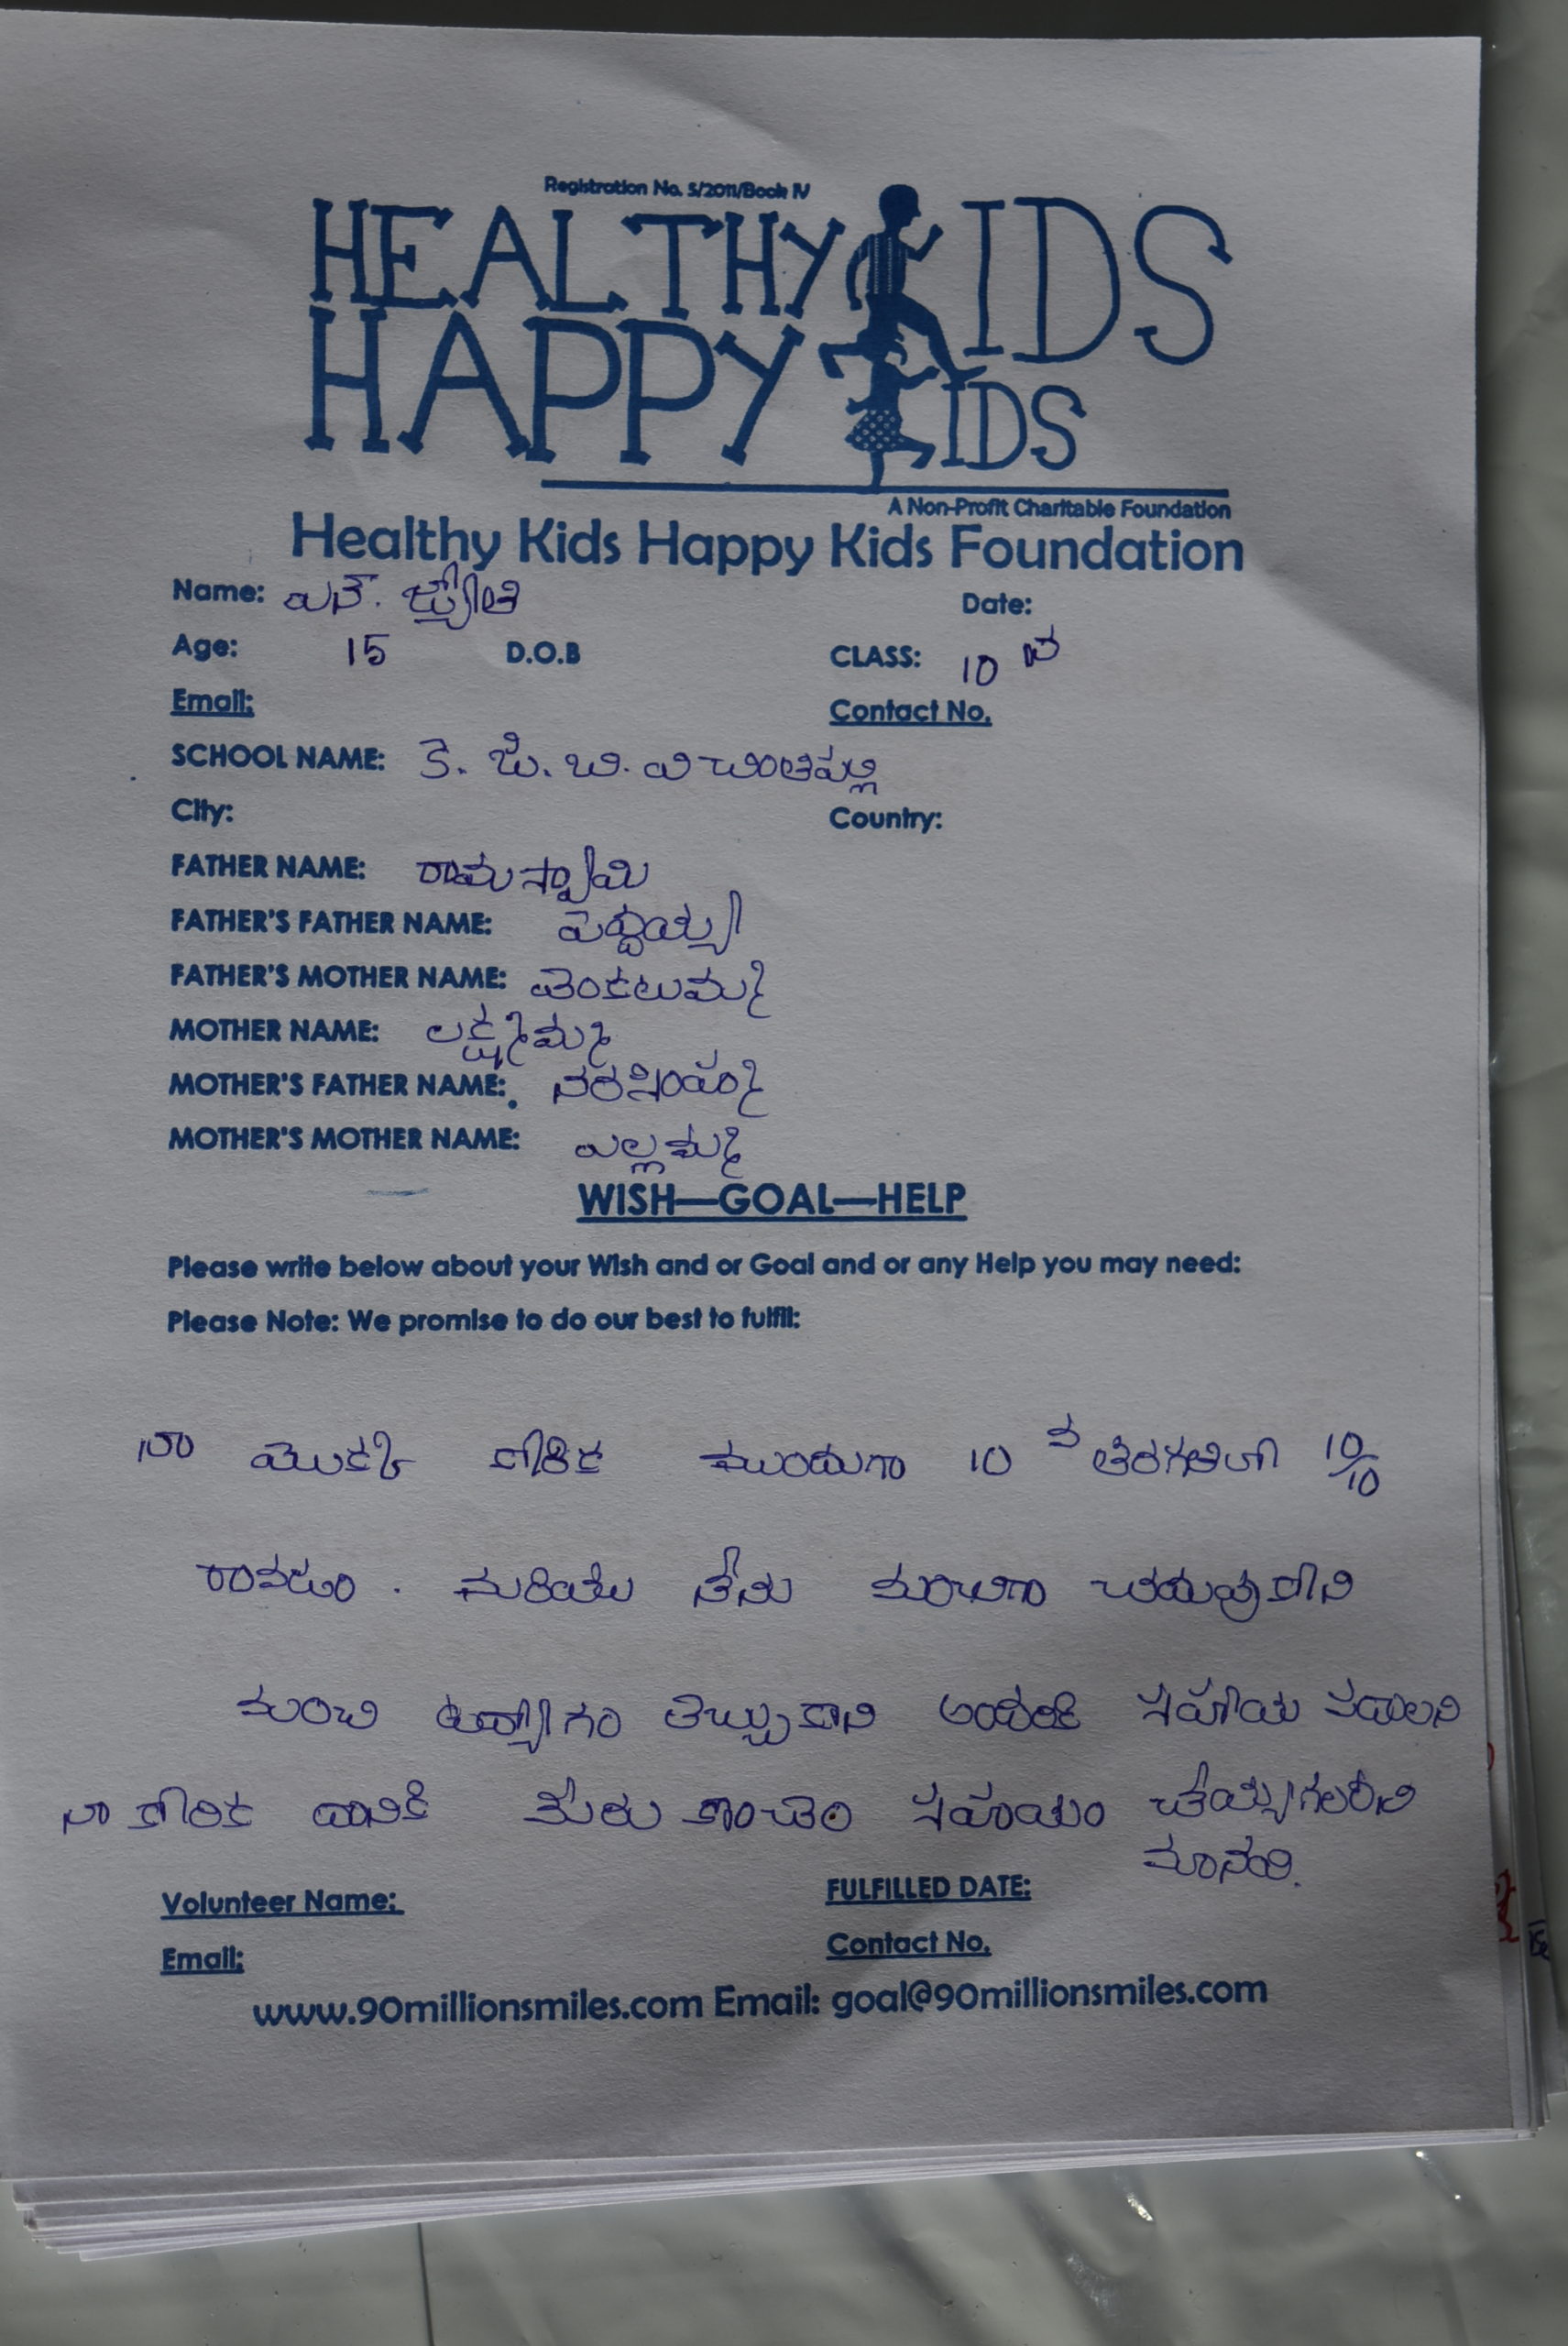 Registration No. 5/2011/Book IV
HEALTHY KIDS
HAPPY KIDS
A Non-Profit Charitable Foundation
Healthy Kids Happy Kids Foundation
Name: ఎన్. జ్యోతి Date:
Age: 15 D.O.B CLASS: 10 వ
Email: Contact No.
SCHOOL NAME: కె. జి. బి. వి చింతపల్లి
City: Country:
FATHER NAME: రామస్వామి
FATHER'S FATHER NAME: పెద్దయ్య
FATHER'S MOTHER NAME: వెంకటమ్మ
MOTHER NAME: లక్ష్మమ్మ
MOTHER'S FATHER NAME: నరసింహ్మ
MOTHER'S MOTHER NAME: ఎల్లమ్మ
WISH—GOAL—HELP
Please write below about your Wish and or Goal and or any Help you may need:
Please Note: We promise to do our best to fulfil:
నా మొక్క కోరిక ముందుగా 10 వ తరగతిలో 10/10
రావడం. మరియు నేను మంచిగా చదువుకోని
మంచి ఉద్యోగం తెచ్చుకొని అందరికి సహయ పడాలని
నా కోరిక దానికి మీరు కొంచెం సహాయం చేయ్యగలరని
మానవి.
Volunteer Name: FULFILLED DATE:
Email: Contact No.
www.90millionsmiles.com Email: goal@90millionsmiles.com